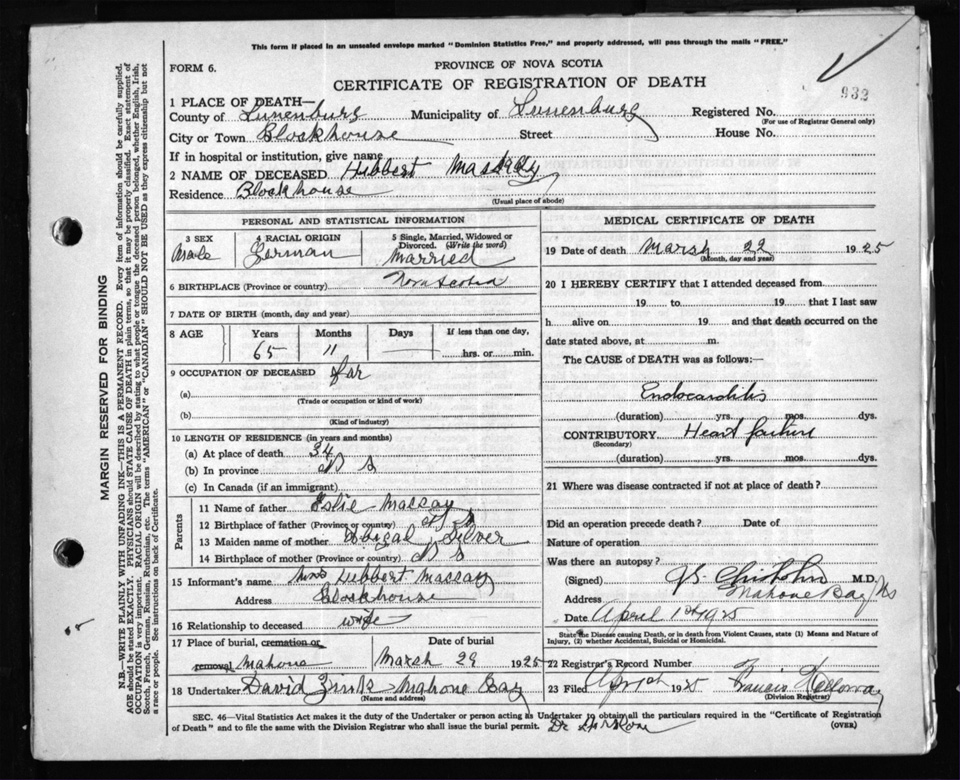 This form if placed in an unsealed envelope marked "Dominion Statistics Free," and properly addressed, will pass through the mails "FREE."
FORM 6.
PROVINCE OF NOVA SCOTIA
CERTIFICATE OF REGISTRATION OF DEATH
932
1 PLACE OF DEATH—
County of Lunenburg Municipality of Lunenburg Registered No.
(For use of Registrar General only)
City or Town Blockhouse Street House No.
If in hospital or institution, give name
2 NAME OF DECEASED Hibbert
Residence Blockhouse
(Usual place of abode)
PERSONAL AND STATISTICAL INFORMATION
3 SEX 4 RACIAL ORIGIN 5 Single, Married, Widowed or Divorced. (Write the word)
Male German Married
6 BIRTHPLACE (Province or country) Nova Scotia
7 DATE OF BIRTH (month, day and year)
8 AGE Years Months Days If less than one day,
65 11 hrs. or min.
9 OCCUPATION OF DECEASED far
(a)
(Trade or occupation or kind of work)
(b)
(Kind of industry)
10 LENGTH OF RESIDENCE (in years and months)
(a) At place of death 34
(b) In province N S
(c) In Canada (if an immigrant)
Parents
11 Name of father Eslie Massay
12 Birthplace of father (Province or country) N S
13 Maiden name of mother Abigal Silver
14 Birthplace of mother (Province or country) N S
15 Informant's name Mrs Hibbert Massay
Address Blockhouse
16 Relationship to deceased wife
17 Place of burial, cremation or removal Mahone Date of burial Marsh 29 1925
18 Undertaker David Zinks Mahone Bay
(Name and address)
MEDICAL CERTIFICATE OF DEATH
19 Date of death Marsh 22 1925
(Month, day and year)
20 I HEREBY CERTIFY that I attended deceased from
19 to 19 that I last saw
h alive on 19 and that death occurred on the
date stated above, at m.
The CAUSE of DEATH was as follows:—
Endocarditis
(duration) yrs. mos. dys.
CONTRIBUTORY Heart failure
(Secondary)
(duration) yrs. mos. dys.
21 Where was disease contracted if not at place of death?
Did an operation precede death? Date of
Nature of operation
Was there an autopsy?
(Signed) Chisholm M.D.
Address Mahone Bay NS
Date April 1st 1925
State the Disease causing Death, or in death from Violent Causes, state (1) Means and Nature of
Injury, (2) whether Accidental, Suicidal or Homicidal.
22 Registrar's Record Number
23 Filed 1925 Francis
(Division Registrar)
SEC. 46—Vital Statistics Act makes it the duty of the Undertaker or person acting as Undertaker to obtain all the particulars required in the "Certificate of Registration
of Death" and to file the same with the Division Registrar who shall issue the burial permit.
(OVER)
MARGIN RESERVED FOR BINDING
N.B.—WRITE PLAINLY WITH UNFADING INK—THIS IS A PERMANENT RECORD. Every item of information should be carefully supplied.
AGE should be stated EXACTLY. PHYSICIANS should STATE CAUSE OF DEATH in plain terms, so that it may be properly classified. Exact statement of
OCCUPATION is very important. RACIAL ORIGIN will be described by stating to what people or tongue the deceased person belonged, whether English, Irish,
Scotch, French, German, Russian, Ruthenian, etc. The terms "AMERICAN" or "CANADIAN" SHOULD NOT BE USED as they express citizenship but not
a race or people. See instructions on back of Certificate.